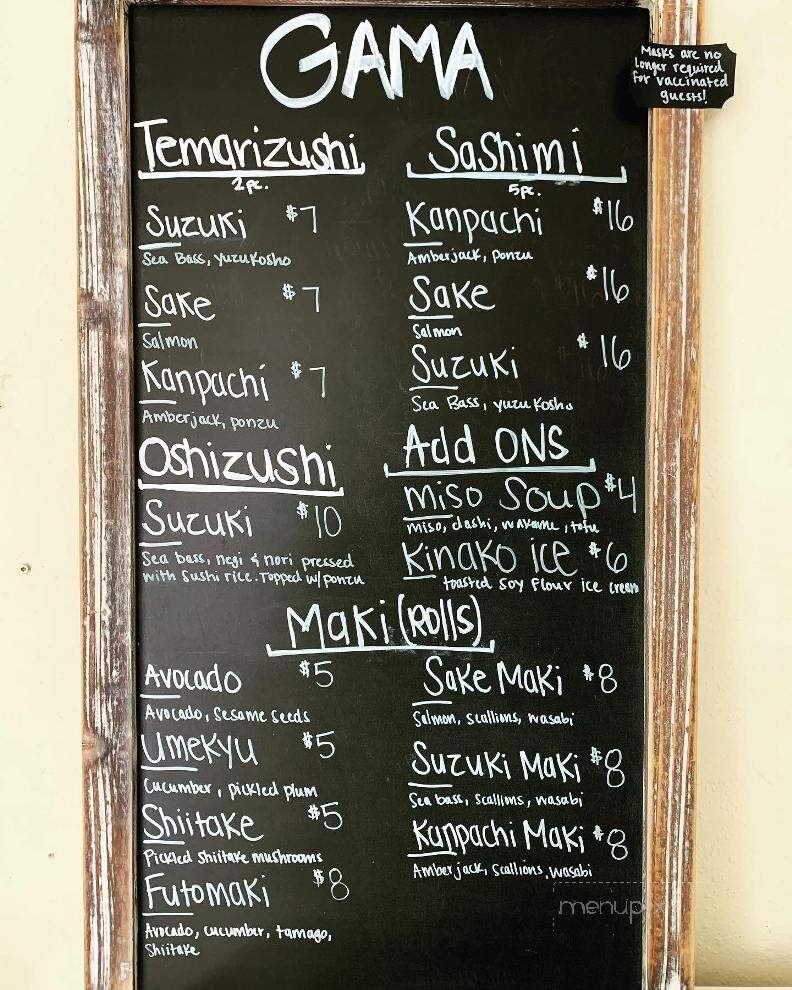 GAMA
Masks are no
longer required
for vaccinated
guests!
Temarizushi
2pc.
Suzuki $7
Sea Bass, yuzu kosho
Sake $7
Salmon
Kanpachi $7
Amberjack, ponzu
Oshizushi
Suzuki $10
Sea bass, negi & nori pressed
with sushi rice. Topped w/ponzu
Sashimi
5pc.
Kanpachi $16
Amberjack, ponzu
Sake $16
Salmon
Suzuki $16
Sea Bass, yuzu kosho
Add ONS
miso Soup $4
miso, dashi, wakame, tofu
Kinako ice $6
toasted soy flour ice cream
Maki (ROLLS)
Avocado $5
Avocado, sesame seeds
Umekyu $5
Cucumber, pickled plum
Shiitake $5
Pickled shiitake mushrooms
Futomaki $8
Avocado, cucumber, tamago,
Shiitake
Sake Maki $8
Salmon, scallions, wasabi
Suzuki Maki $8
Sea bass, scallions, wasabi
Kanpachi Maki $8
Amberjack, scallions, wasabi